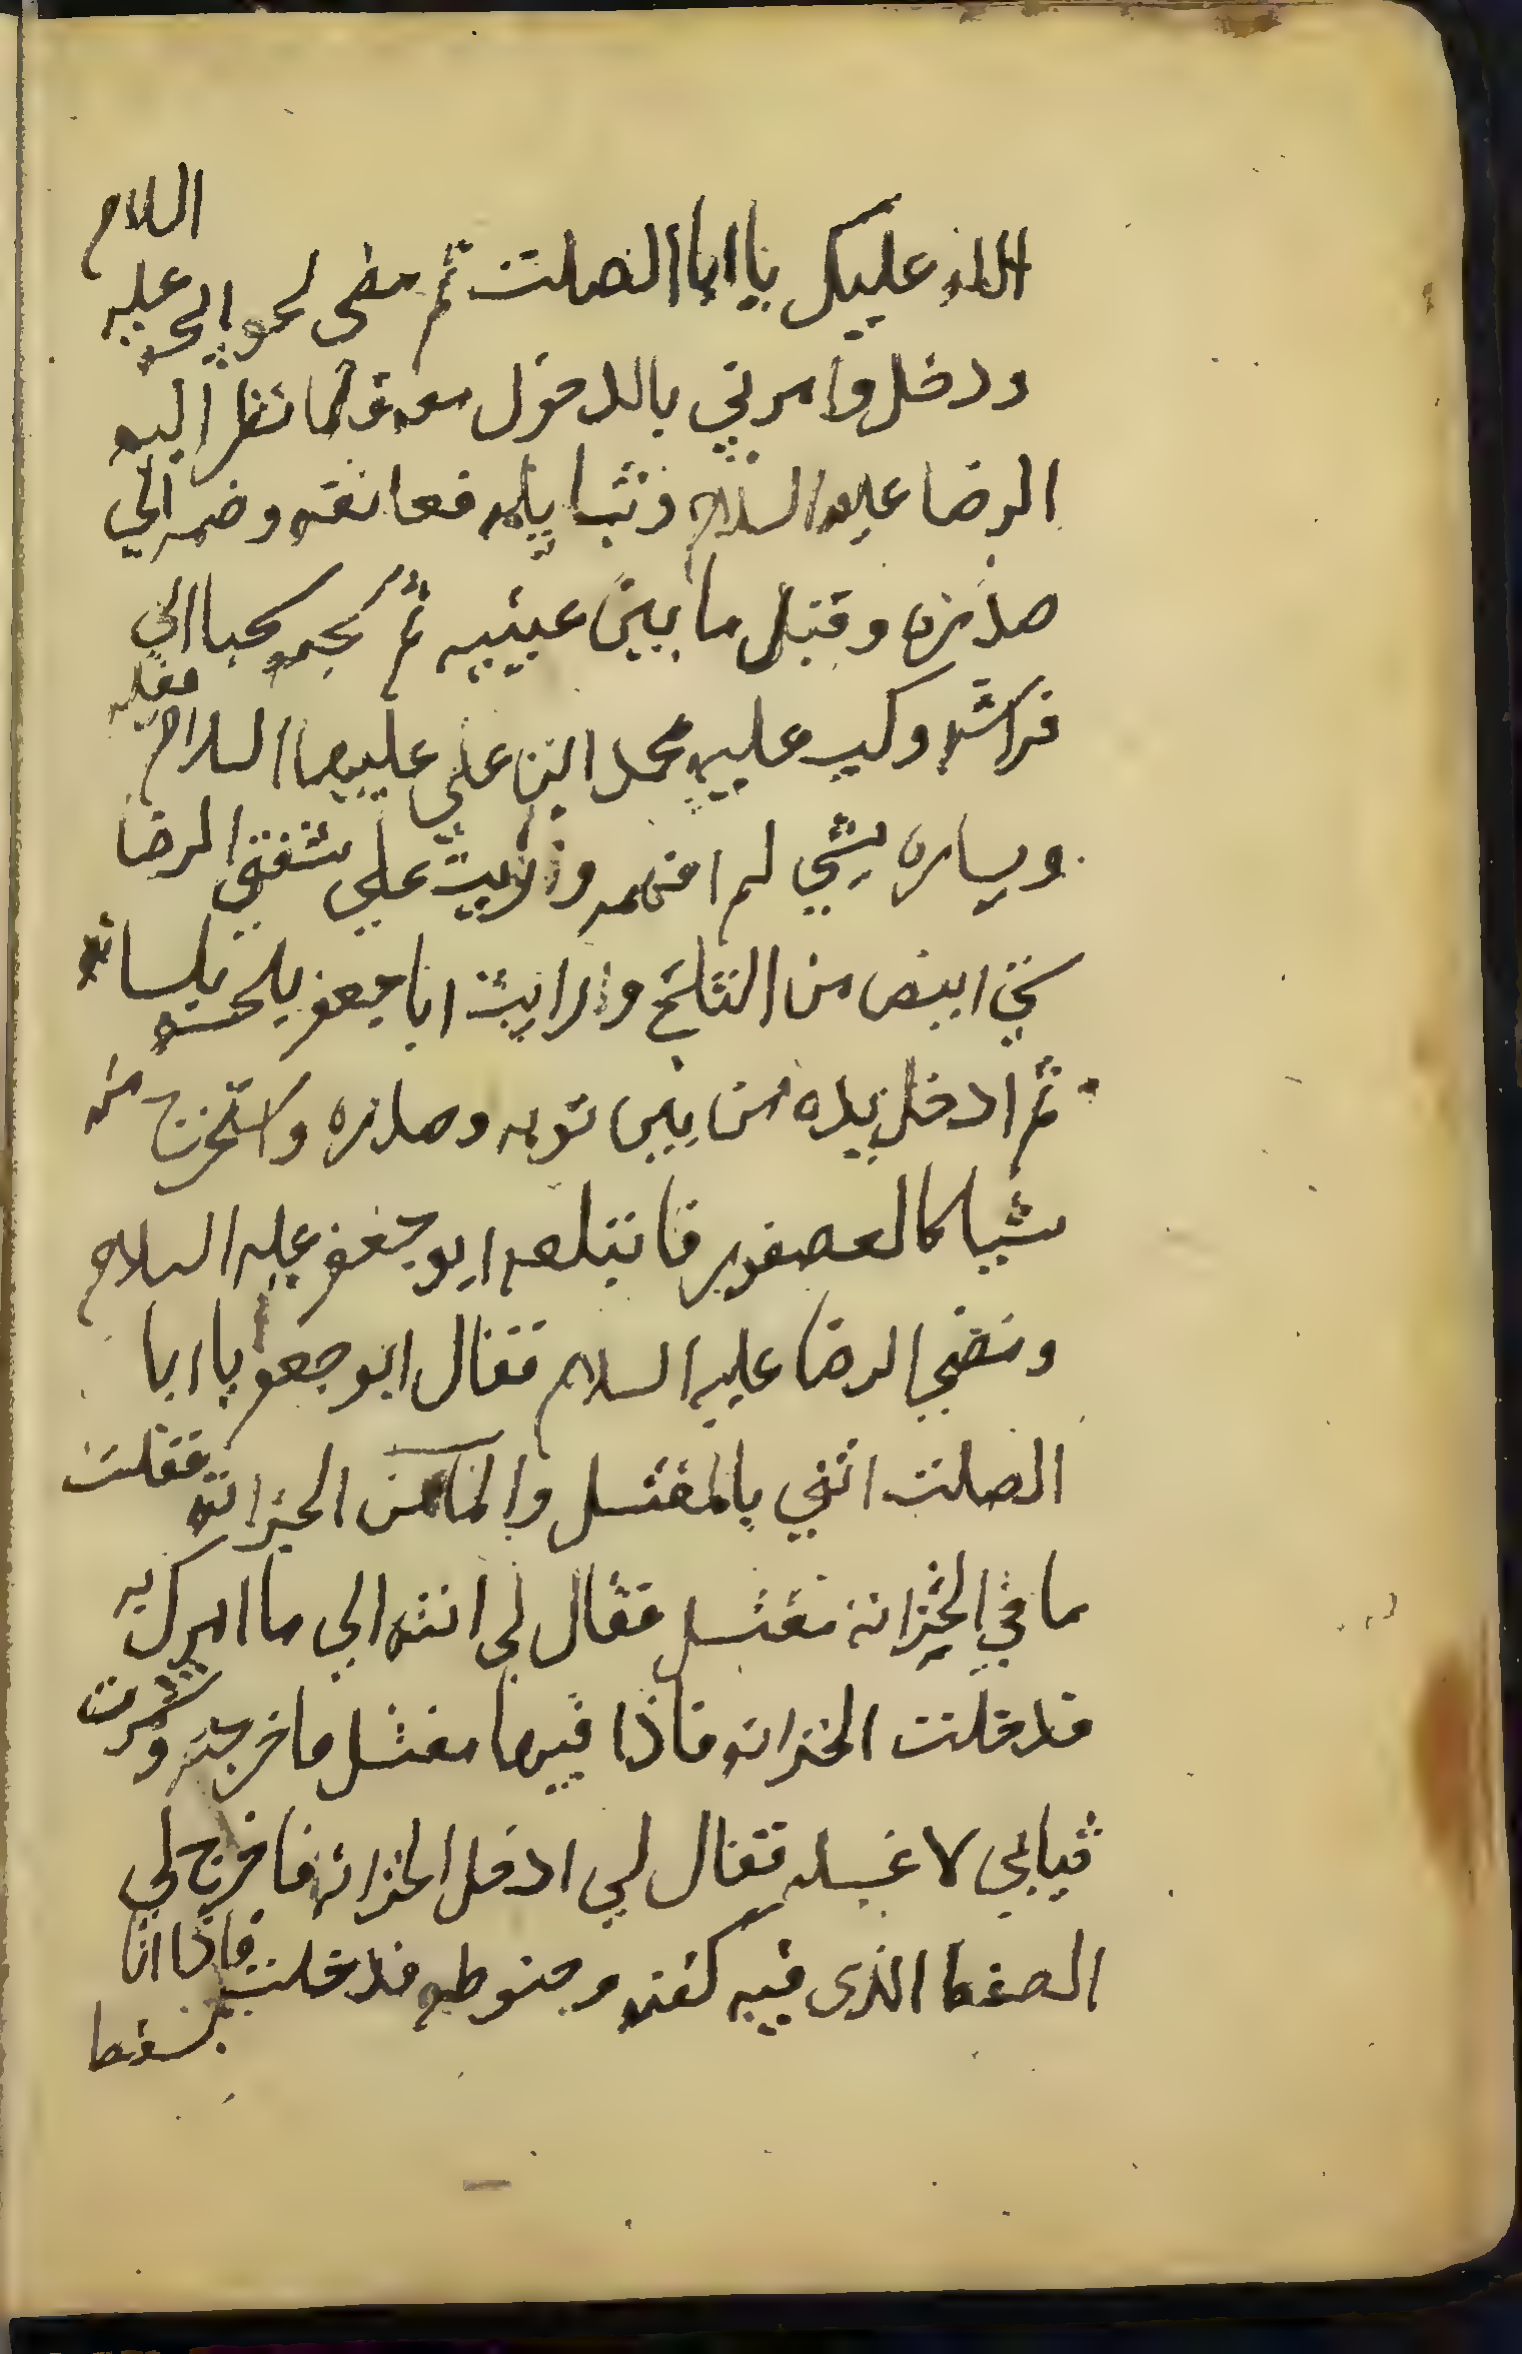 الله عليك يا ابا الصلت ثم مضى نحو ابيه عليه السلام
ودخل وامرني بالدخول معه فلما نظر اليه
الرضا عليه السلام وثب اليه فعانقه وضمه الي
صدره وقبل ما بين عينيه ثم سحبه سحبا الى
فراشه وكب عليه محمد ابن علي عليهما السلام يقبله
ويساره بشي لم افهمه ورايت على شفتي الرضا
شي ابيض من الثلج ورايت ابا جعفر يلحسه بلسانه
ثم ادخل يده من بين ثوبه وصدره واستخرج منه
شيا كالعصفور فابتلعه ابو جعفر عليه السلام
ومضى الرضا عليه السلام فقال ابو جعفر يا ابا
الصلت اتني بالمغتسل والما من الخزانه فقلت
ما في الخزانه مغتسل فقال لي انته الى ما امرك به
فدخلت الخزانه فاذا فيها مغتسل فاخرجته وشمرت
ثيابي لاغسله فقال لي ادخل الخزانه فاخرج لي
الصفط الذي فيه كفنه وحنوطه فدخلت فاذا انا
بسفط